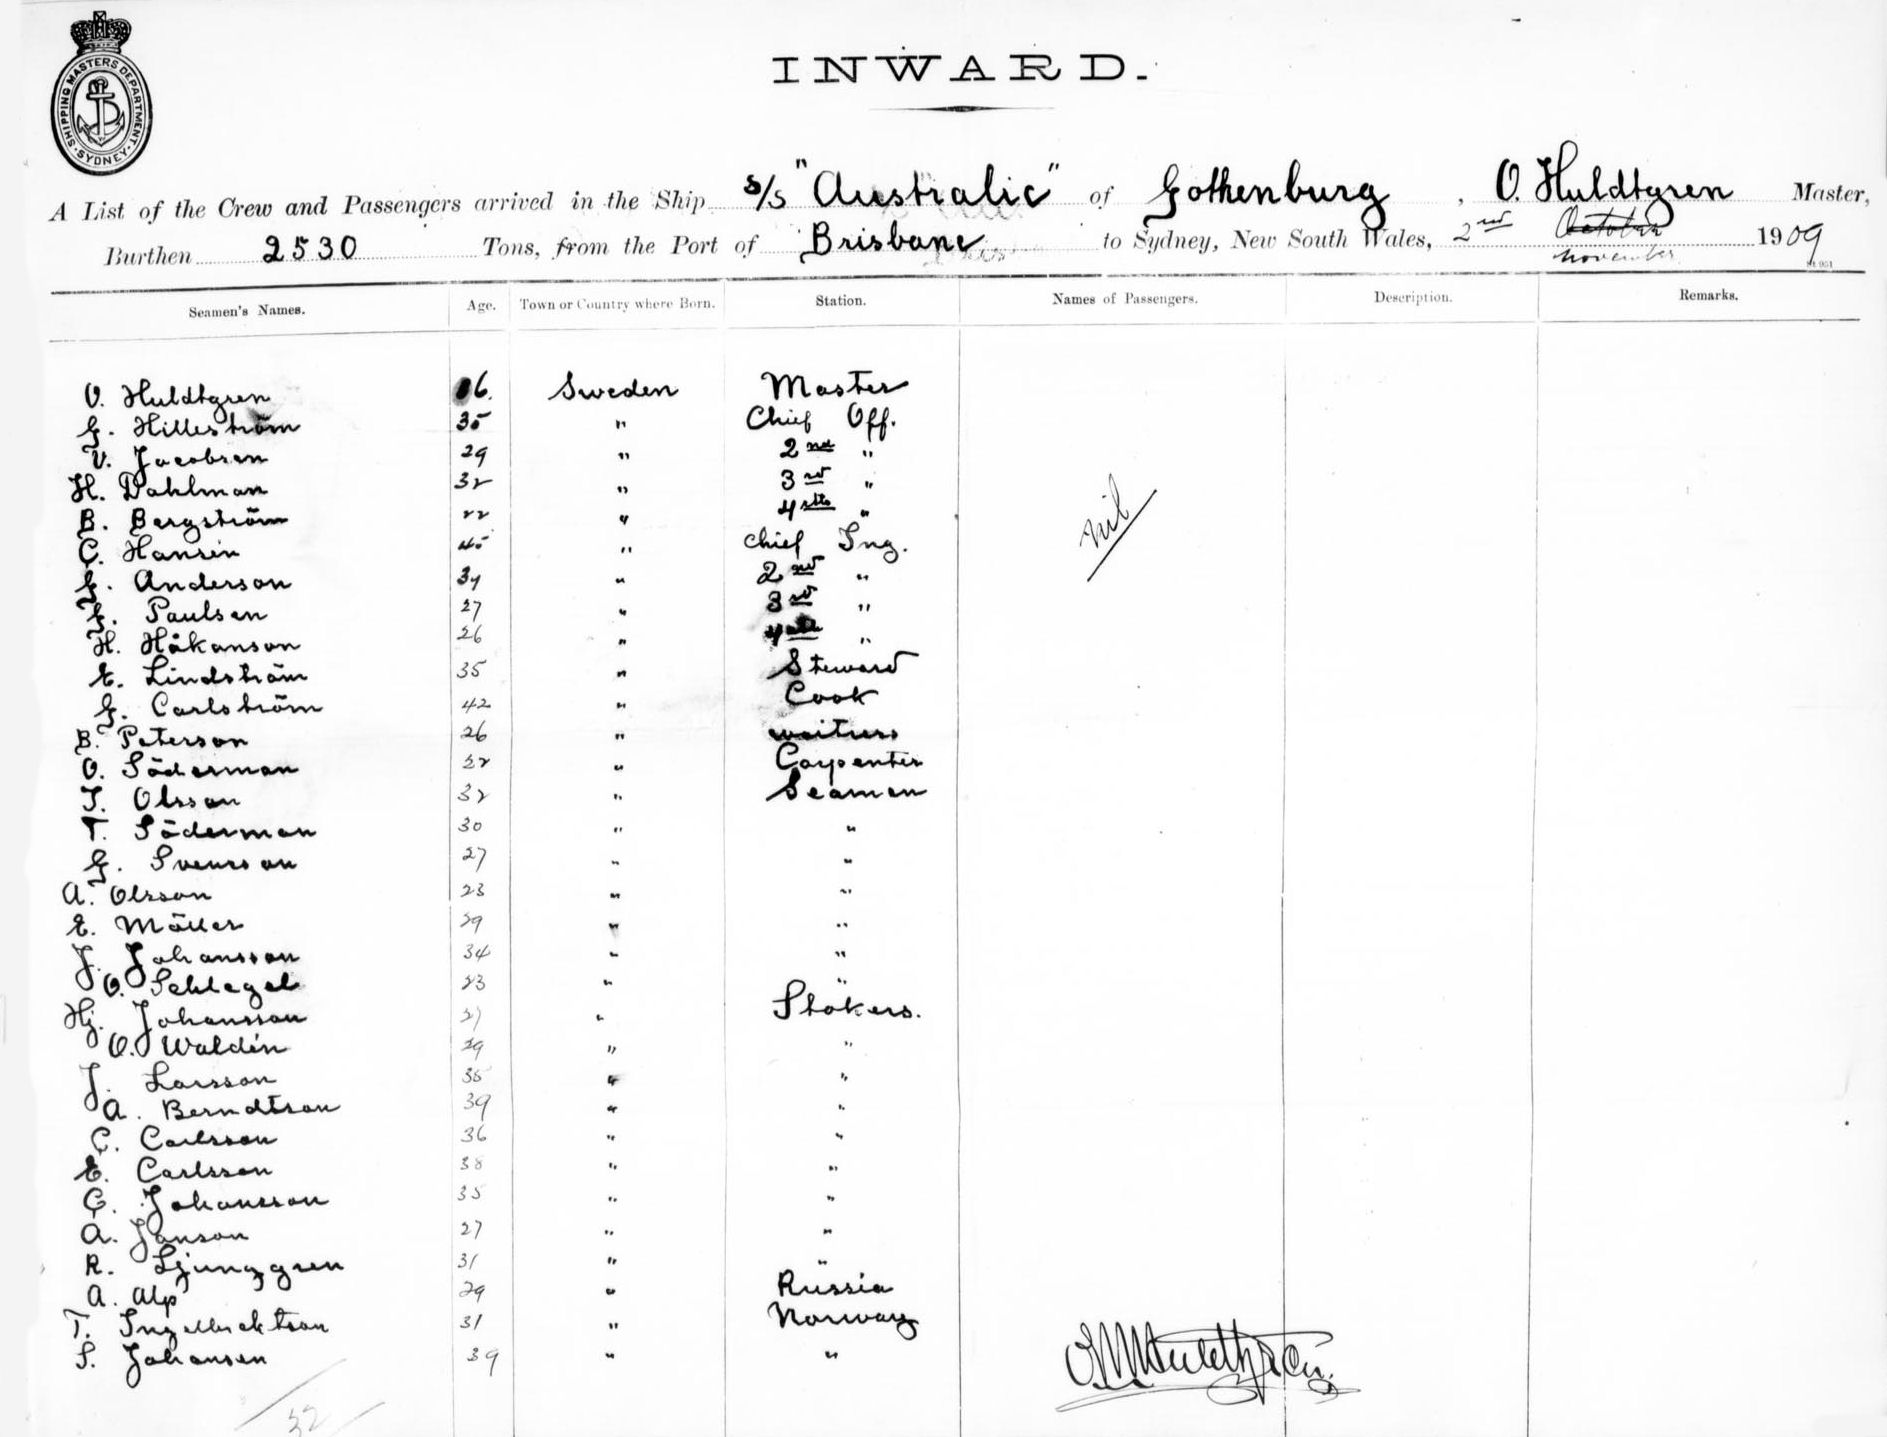 SHIPPING MASTERS DEPARTMENT · SYDNEY ·
INWARD.
A List of the Crew and Passengers arrived in the Ship s/s "Australic" of Gothenburg, O. Huldtgren Master,
Burthen 2530 Tons, from the Port of Brisbane to Sydney, New South Wales, 2nd October November 1909
Seamen's Names. Age. Town or Country where Born. Station. Names of Passengers. Description. Remarks.
O. Huldtgren 6. Sweden Master
G. Hilleström 35 " Chief Off.
V. Jacobsen 29 " 2nd "
H. Dahlman 32 " 3rd "
B. Bergström 22 " 4th "
C. Hansen 45 " Chief Ing.
E. Anderson " 2nd "
Paulsen 27 " 3rd "
H. Håkanson 26 " 4th "
E. Lindström 35 " Steward
G. Carlström 42 " Cook
B. Peterson 26 " waitress
O. Söderman 22 " Carpenter
J. Olsson 32 " Seamen
T. Söderman 30 " "
G. Svensson 27 " "
A. Olsson 23 " "
E. Möller 29 " "
J. Johansson 34 " "
O. Schlegel 23 " "
Hj. Johansson 27 " Stokers.
O. Waldén 29 " "
J. Larsson 35 " "
A. Berndtson 39 " "
C. Carlsson 36 " "
E. Carlsson 38 " "
C. Johansson 35 " "
A. Janson 27 " "
R. Ljunggren 31 " "
A. Alp 29 " Russia
T. Ingelbrektson 31 " Norway
S. Johansen 39 " "
nil
32